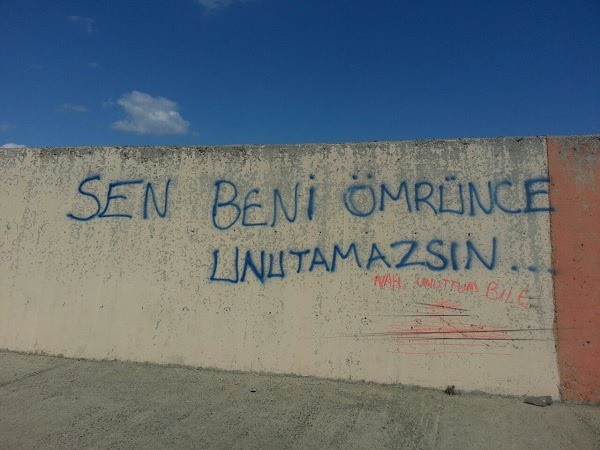 SEN BENİ ÖMRÜNCE
UNUTAMAZSIN...
NAH, UNUTTUM BİLE